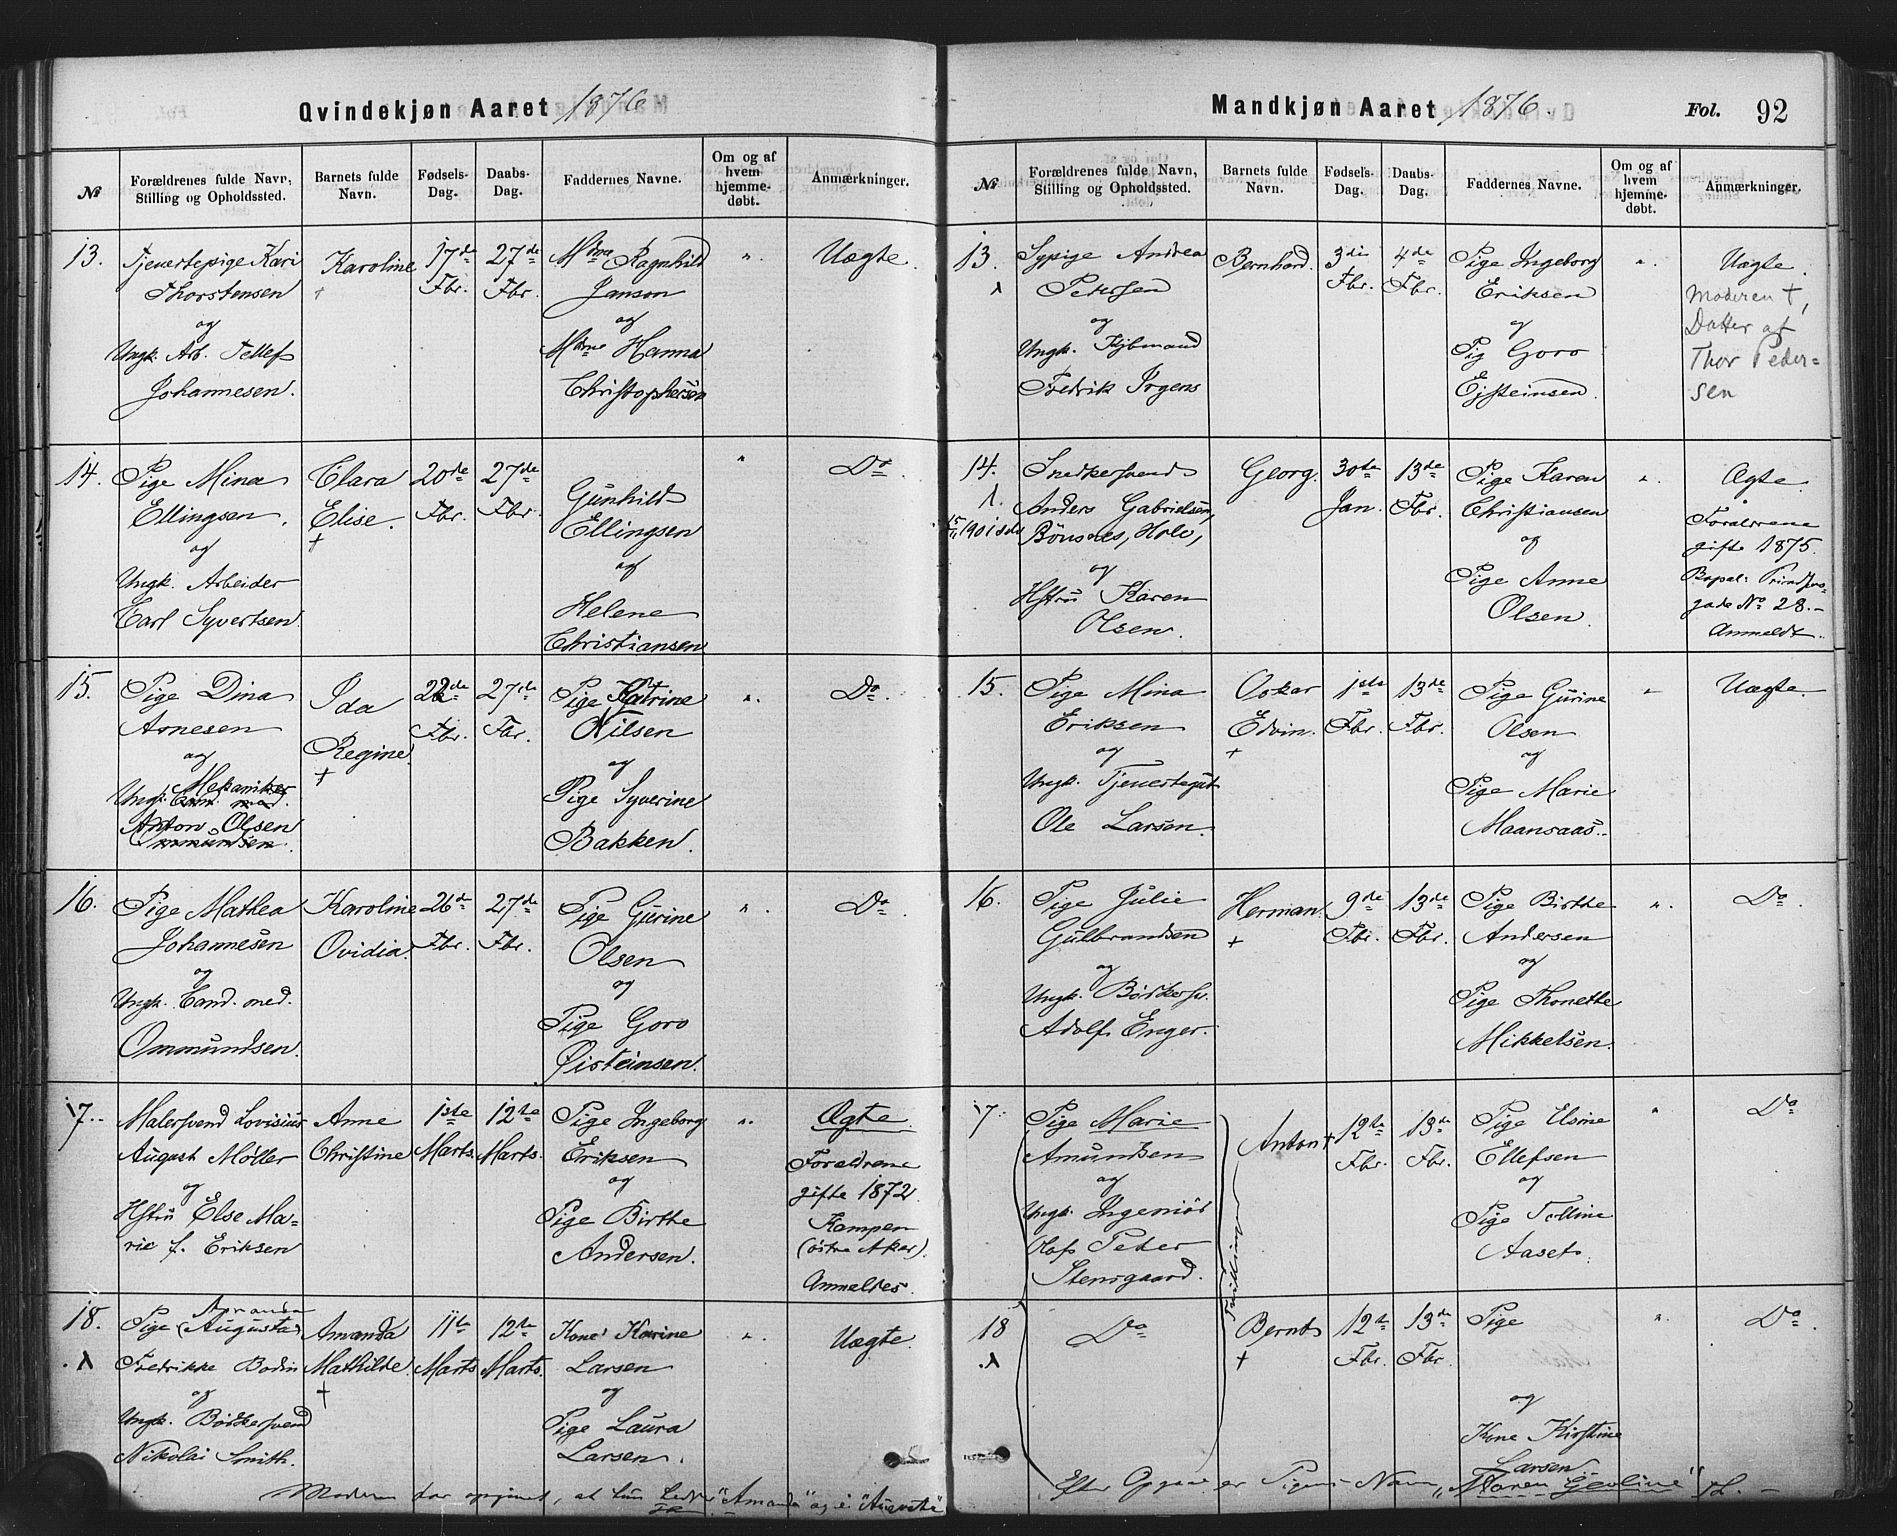 Qvindekjøn Aaret 1876
№
Forældrenes fulde Navn, Stilling og Opholdssted.
Barnets fulde Navn.
Fødsels-Dag.
Daabs-Dag.
Faddernes Navne.
Om og af hvem hjemme-døbt.
Anmærkninger.
13. Tjenestepige Kari Karoline 17de 27de Mdme Ragnhild " Uægte.
Thorstensen Fbr. Fbr. Janson
og og
Ungk. Arb. Tellef Mdme Hanna
Johannesen. Christophersen
14. Pige Mina Clara 20de 27de Gunhild " Do.
Ellingsen, Elise. Fbr. Fbr. Ellingsen
og og
Ungk. Arbeider Helene
Carl Syvertsen. Christiansen
15. Pige Dina Ida 22de 27de Pige Katrine " Do.
Arnesen Regine Fbr. Fbr. Nilsen
og og
Ungk. Mekaniker Pige Syverine
Anton Olsen Bakken.
Ommundsen.
16. Pige Mathea Karoline 26de 27de Pige Gurine " Do.
Johannesen Ovidia. Fbr. Fbr. Olsen
og og
Ungk. Cand. med. Pige Goro
Ommundsen. Øisteinsen.
17. Malersvend Lovisius Anne 1ste 12te Pige Ingeborg " Ægte.
August Møller Christine Marts. Marts. Eriksen Forældrene
og og gifte 1872
Hstru Else Ma- Pige Birthe Kampen
rie f. Eriksen Andersen. (østre Aker).
Anmeldes.
18. Pige (Augusta) Amanda Amanda 11te 12te Kone Karine " Uægte
Fredrikke Bodin Mathilde Marts Marts. Larsen
og og
Ungk. Bødkersvend Pige Laura
Nikolai Smith. Larsen.
Moderen har opgivet, at hun heder "Amanda" og ei "Augusta"
Mandkjøn Aaret 1876
Fol. 92
№
Forældrenes fulde Navn, Stilling og Opholdssted.
Barnets fulde Navn.
Fødsels-Dag.
Daabs-Dag.
Faddernes Navne.
Om og af hvem hjemme-døbt.
Anmærkninger.
13. Sypige Andrea Bernhard. 3die 4de Pige Ingeborg " Uægte.
Petersen Fbr. Fbr. Eriksen Moderen †,
og og Datter af
Ungk. Kjbmand Pig Goro Thor Peder-
Fredrik Irgens Ejsteinsen. sen
14. Snedkersvend Georg. 30te 13de Pige Karen " Ægte.
Anders Gabrielsen, Jan. Fbr. Christiansen Forældrene
Bönsnes, Hole, og gifte 1875.
og Pige Anne
Hstru Karen Olsen. gade No 28.-
Olsen. Anmeldt.
15. Pige Mina Oskar 1ste 13de Pige Gurine " Uægte.
Eriksen Edvin. Fbr. Fbr. Olsen
og og
Ungk. Tjenestegut Pige Marie
Ole Larsen. Maansaas.
16. Pige Julie Herman. 9de 13de Pige Birthe " Do.
Gulbrandsen Fbr. Fbr. Andersen
og og
Ungk. Bødkersv. Pige Thonette
Adolf Enger. Mikkelsen.
17. Pige Marie Anton 12te 13de Pige Elsine " Do
Amundsen Fbr. Fbr. Ellefsen
og og
Ungk. Ingeniør Pige Telline
Olaf Peter Aaset.
Stensgaard.
Tvillinger
18 Do Bernt 12te 13de Pige " Do.
Fbr. Fbr. og
Kone Kirstine
Larsen
Efter Opgave er Pigens Navn "Maren Geoline"